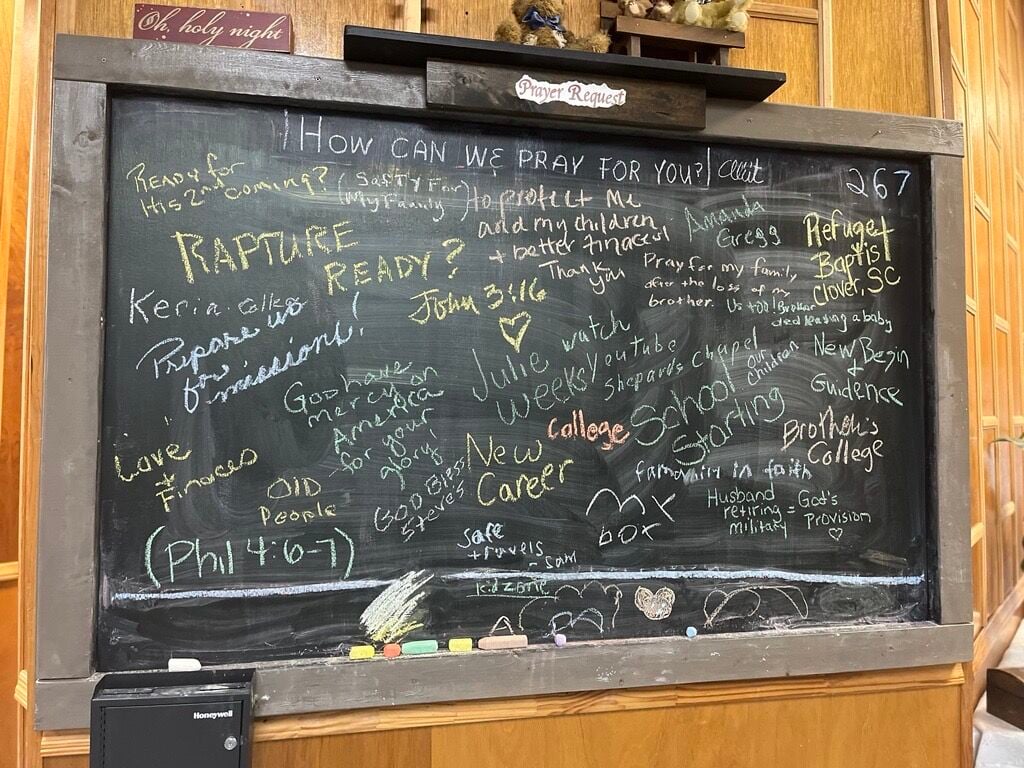 Oh, holy night
Prayer Request
HOW CAN WE PRAY FOR YOU?
267
READY for
His 2nd Coming?
(SaftY For
My Family)
to protect Me
and my children
+ better finacesl
Thank
you
Amanda
Gregg
Refuge
Baptist
Clover, SC
RAPTURE
READY?
John 3:16
Pray for my family
after the loss of my
brother.
Us too! Brother
died leaving a baby
Keria. College
Prepare us
for missions!
God have
mercy on
America
for your
glory!
Julie
weeks
watch
YouTube
Shepards Chapel
our
children
School
Starting
New Begin
Guidence
College
Brother's
College
Love
+
Finances
OlD
PeoPle
GOD Bless
Steves
New
Career
in faith
Husband
retiring = God's
military Provision
box
(Phil 4:6-7)
Safe
travels
- Sam
KidZone
Honeywell